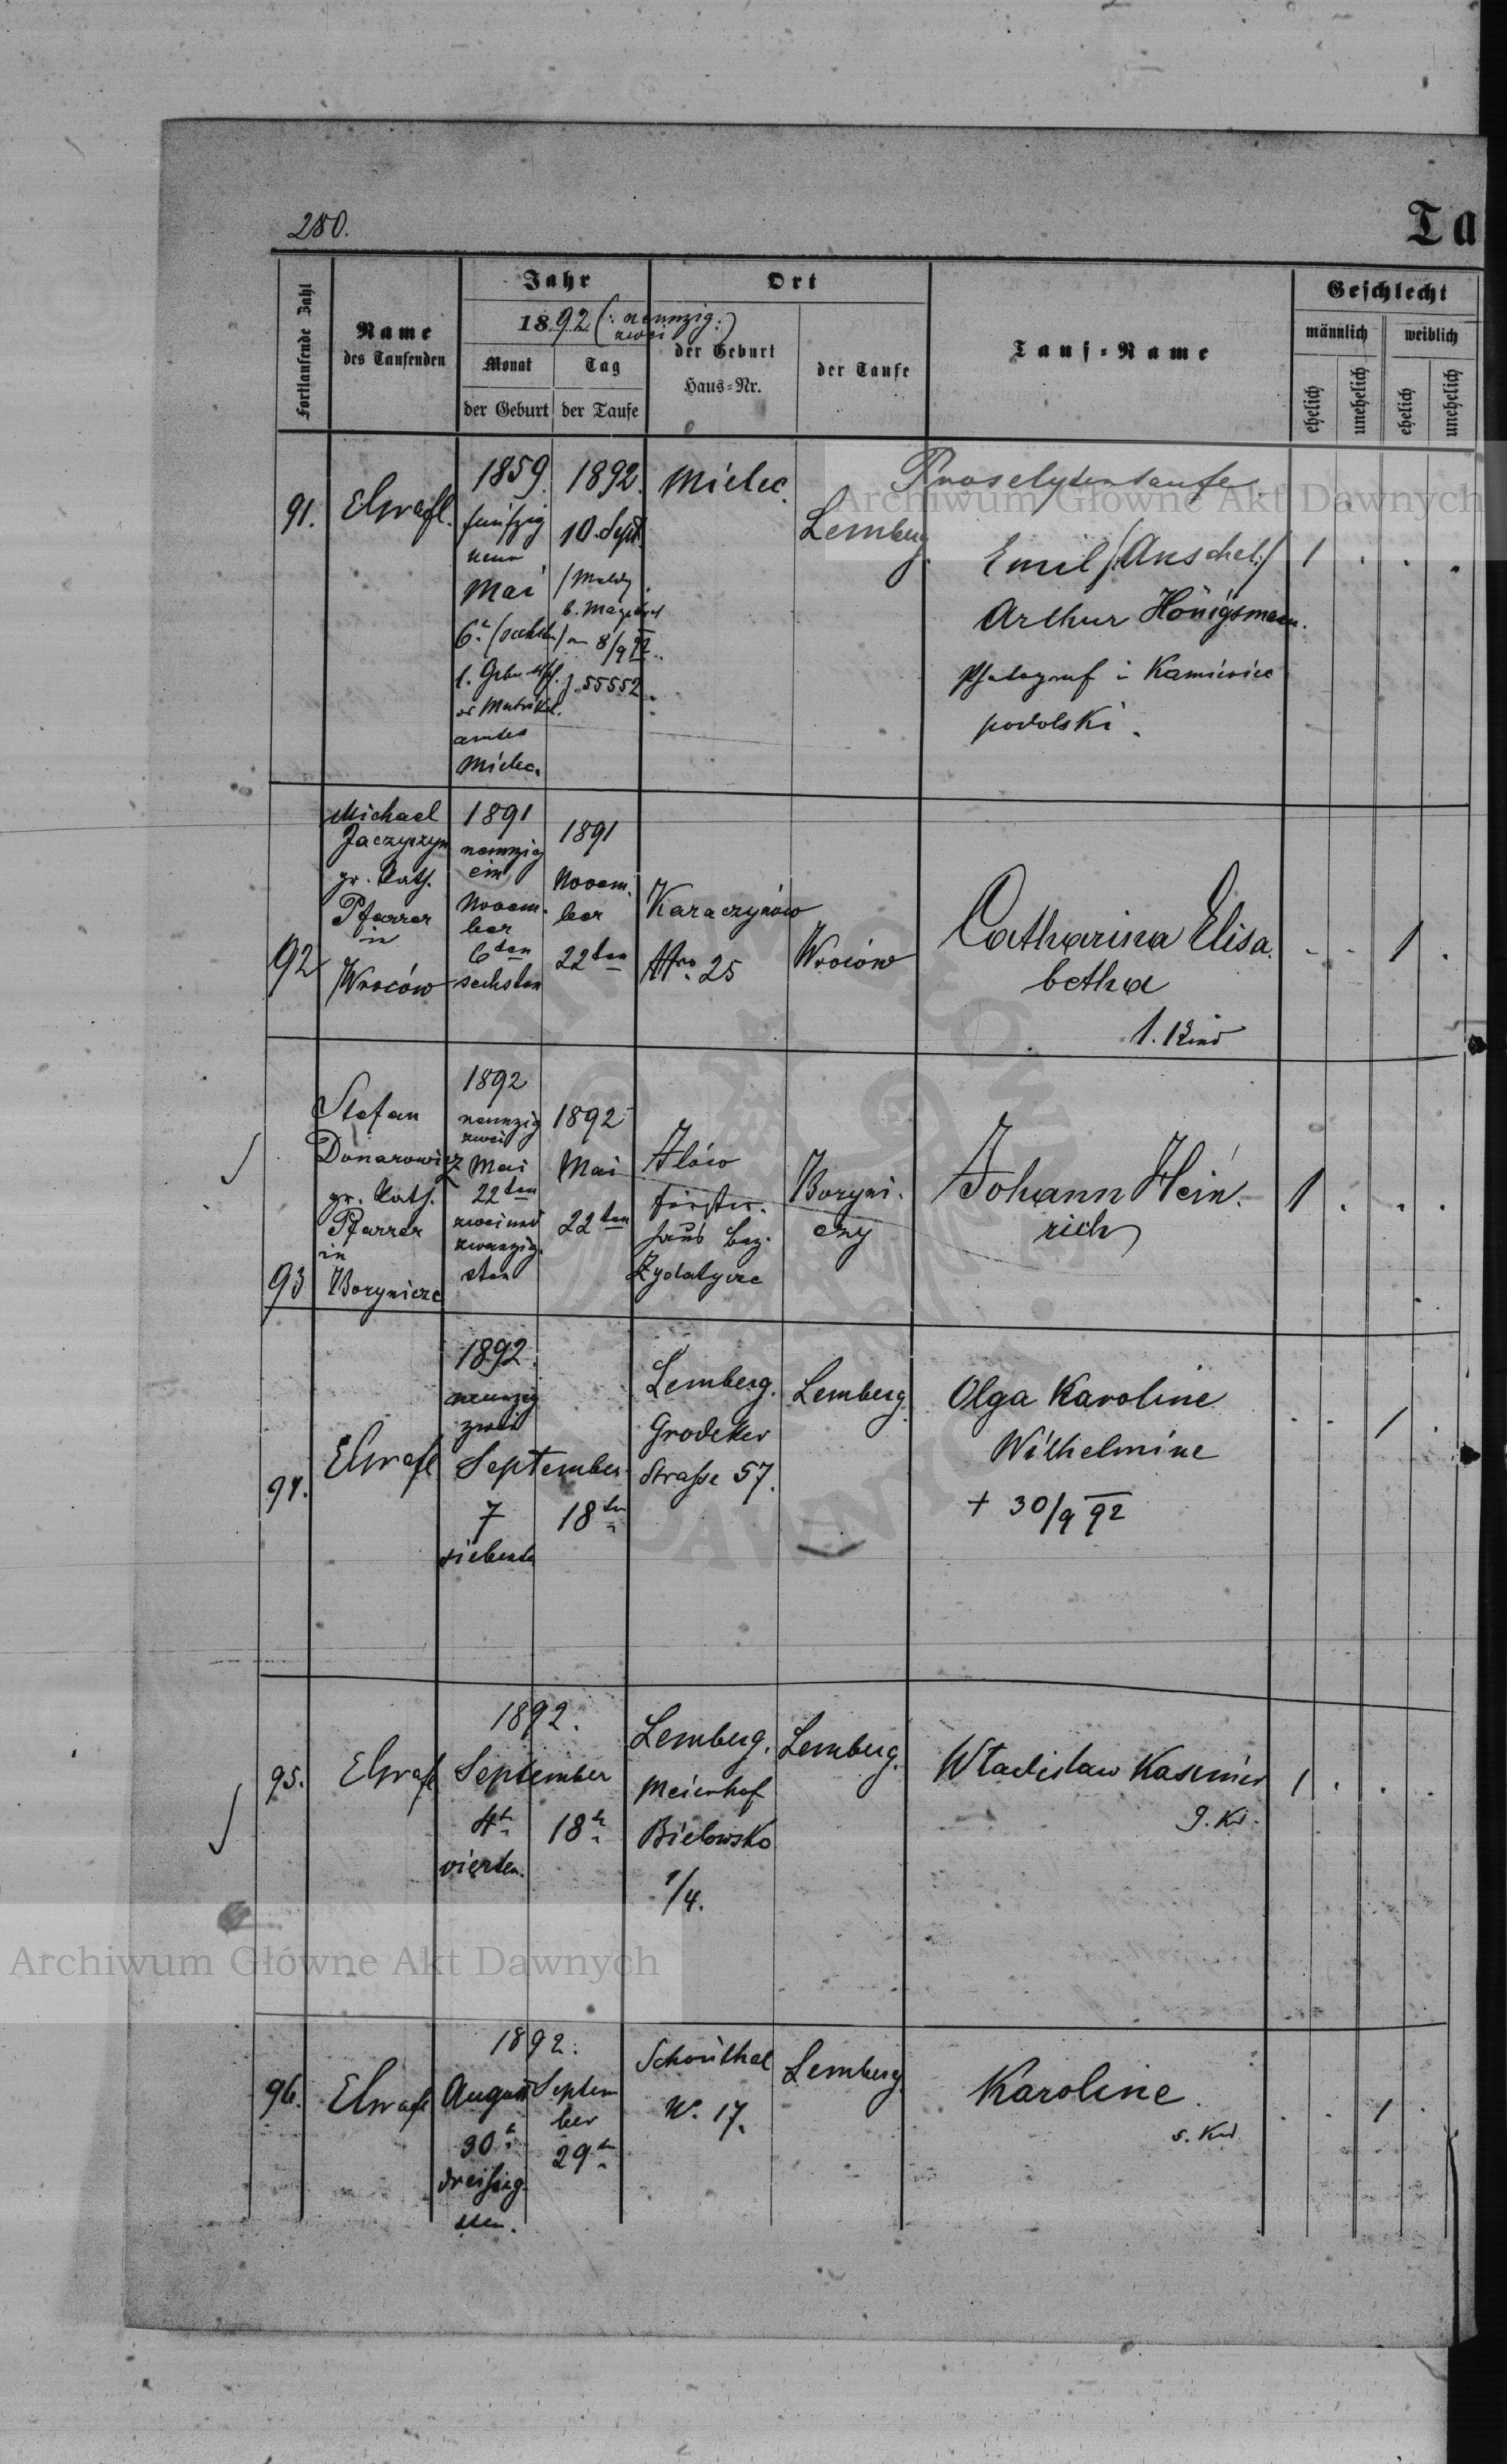 280.
Ta
Fortlaufende Zahl
Name
des Taufenden
Jahr
1892 (: neunzig:)
zwei
Monat
Tag
der Geburt
der Taufe
Ort
der Geburt
Haus-Nr.
der Taufe
Tauf-Name
Geschlecht
männlich
weiblich
ehelich
unehelich
ehelich
unehelich
91.
1859.
fünfzig
neun
Mai
6t
Matrikel
amtes
Mielec.
1892.
10. Sept.
8/9 92.
J. 55552.
Mielec.
Lemberg.
Proselytentaufe
Emil /:Anschel:/
Arthur Hönigsmann.
Photograf in Kamieniec
podolski.
1 . . .
92
Michael
Jaczyszyn
gr. kath.
Pfarrer
in
Wrocow
1891
neunzig
ein
Novem-
ber
6ten
sechsten
1891
Novem-
ber
22ten
Karaczynów
Nro 25
Wrocow
Catharina Elisa-
betha
1. Kind
- - 1 .
93
Stefan
Donarowicz
gr. kath.
Pfarrer
in
Borynicze
1892
neunzig
zwei
Mai
22ten
zweiund
zwanzig-
sten
1892
Mai
22ten
Iłów
Förster-
haus bez.
Zydatycze
Boryni-
czy
Johann Hein-
rich
1 . . .
94.
1892.
neunzig
zwei
September
7
siebente
18ten
Lemberg.
Grodeker
Strasse 57.
Lemberg.
Olga Karoline
Wilhelmine
+ 30/9 92
. . 1 .
95.
1892.
September
4t
vierten.
18t
Lemberg.
Meierhof
Bielowsko
1/4.
Lemberg.
Wladislaw Kasimir
9. Kd.
1 . . .
96.
1892.
August
30t
dreißig-
sten.
Septem
ber
29t
Schönthal
N. 17.
Lemberg.
Karoline.
5. Kd.
. . 1 .
Archiwum Główne Akt Dawnych
Archiwum Główne Akt Dawnych